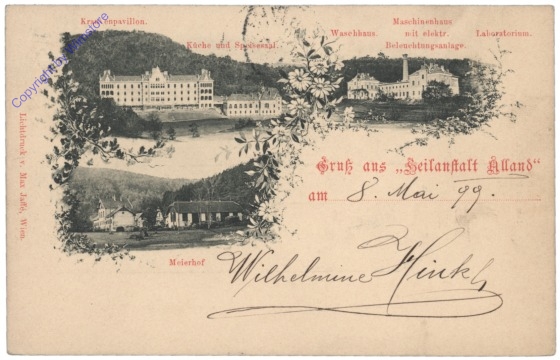 Krankenpavillon.
Küche und Speisesaal.
Waschhaus.
Maschinenhaus
mit elektr.
Beleuchtungsanlage.
Laboratorium.
Gruß aus „Heilanstalt Alland"
am 8. Mai 99.
Meierhof
Wilhelmine
Lichtdruck v. Max Jaffé, Wien.